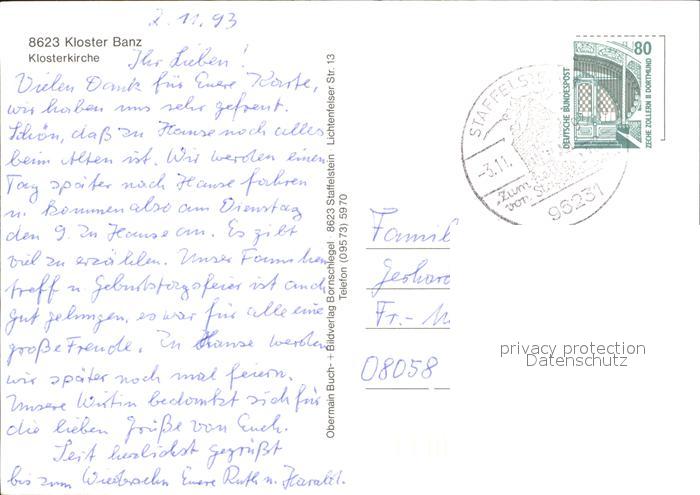 2.11.93
8623 Kloster Banz
Klosterkirche
Ihr Lieben!
Vielen Dank für Euere Karte,
wir haben uns sehr gefreut.
Schön, daß zu Hause noch alles
beim Alten ist. Wir werden einen
Tag später nach Hause fahren
u. kommen also am Dienstag
den 9. zu Hause an. Es gibt
viel zu erzählen. Unser Familien
treff u Geburtstagsfeier ist auch
gut gelungen, es war für alle eine
große Freude. Zu Hause werden
wir später noch mal feiern.
Unsere Wirtin bedankt sich für
die lieben Grüße von Euch.
Seit herzlichst gegrüßt
bis zum Wiedersehn Euere Ruth u. Harald.
Obermain Buch- + Bildverlag Bornschlegel 8623 Staffelstein Lichtenfelser Str. 13
Telefon (09573) 5970
80
DEUTSCHE BUNDESPOST
ZECHE ZOLLERN II DORTMUND
STAFFELST
-3.11.
"Zum
von St
96231
Famil
Gerhard
Fr.-
08058
privacy protection
Datenschutz